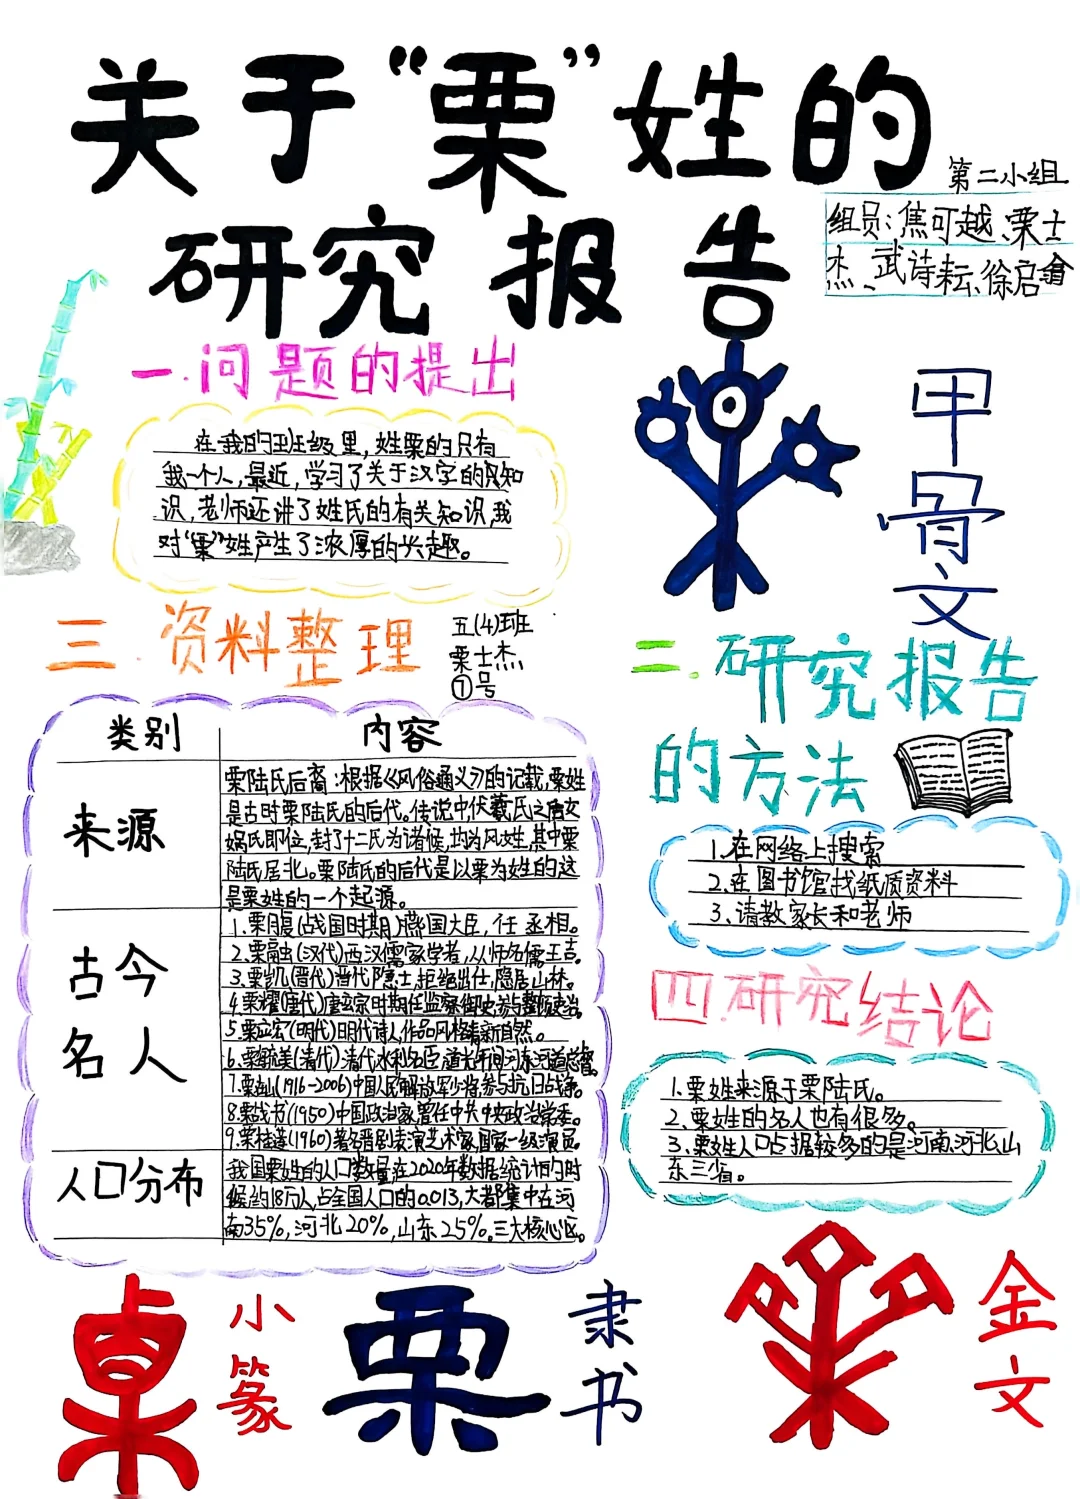 关于“栗”姓的
研究报告
第二小组
组员:焦可越、栗士
杰、武诗耘、徐启翕
一.问题的提出
在我的班级里,姓栗的只有
我一个人,最近,学习了关于汉字的知
识,老师还讲了姓氏的有关知识,我
对“栗”姓产生了浓厚的兴趣。
甲骨文
二.研究报告
的方法
1.在网络上搜索
2.在图书馆找纸质资料
3、请教家长和老师
三.资料整理
五(4)班
栗士杰
①号
类别 内容
来源
栗陆氏后裔:根据《风俗通义》的记载,栗姓
是古时栗陆氏的后代。传说中伏羲氏之后女
娲氏即位,封了十二氏为诸侯,均为风姓,其中栗
陆氏居北。栗陆氏的后代是以栗为姓的这
是栗姓的一个起源。
古今
名人
1.栗腹(战国时期)燕国大臣,任丞相。
2.栗融(汉代)西汉儒家学者,从师名儒王吉。
3.栗凯(晋代)晋代隐士,拒绝出仕,隐居山林。
4.栗耀(唐代)唐玄宗时期任监察御史,参与整顿吏治。
5.栗立宏(明代)明代诗人,作品风格清新自然。
6.栗毓美(清代)清代水利名臣,道光年间河东河道总督。
7.栗(1916-2006)中国人民解放军少将,参与抗日战争。
8.栗战书(1950)中国政治家,曾任中共中央政治常委。
9.栗桂莲(1960)著名晋剧表演艺术家,国家一级演员。
人口分布
我国栗姓的人口数量在2020年数据统计的时
候约18万人,占全国人口的0.013,大都集中在河
南35%,河北20%,山东25%。三大核心区。
四.研究结论
1.栗姓来源于栗陆氏。
2.栗姓的名人也有很多。
3.栗姓人口占据较多的是河南、河北、山
东三省。
小篆
栗
隶书
金文